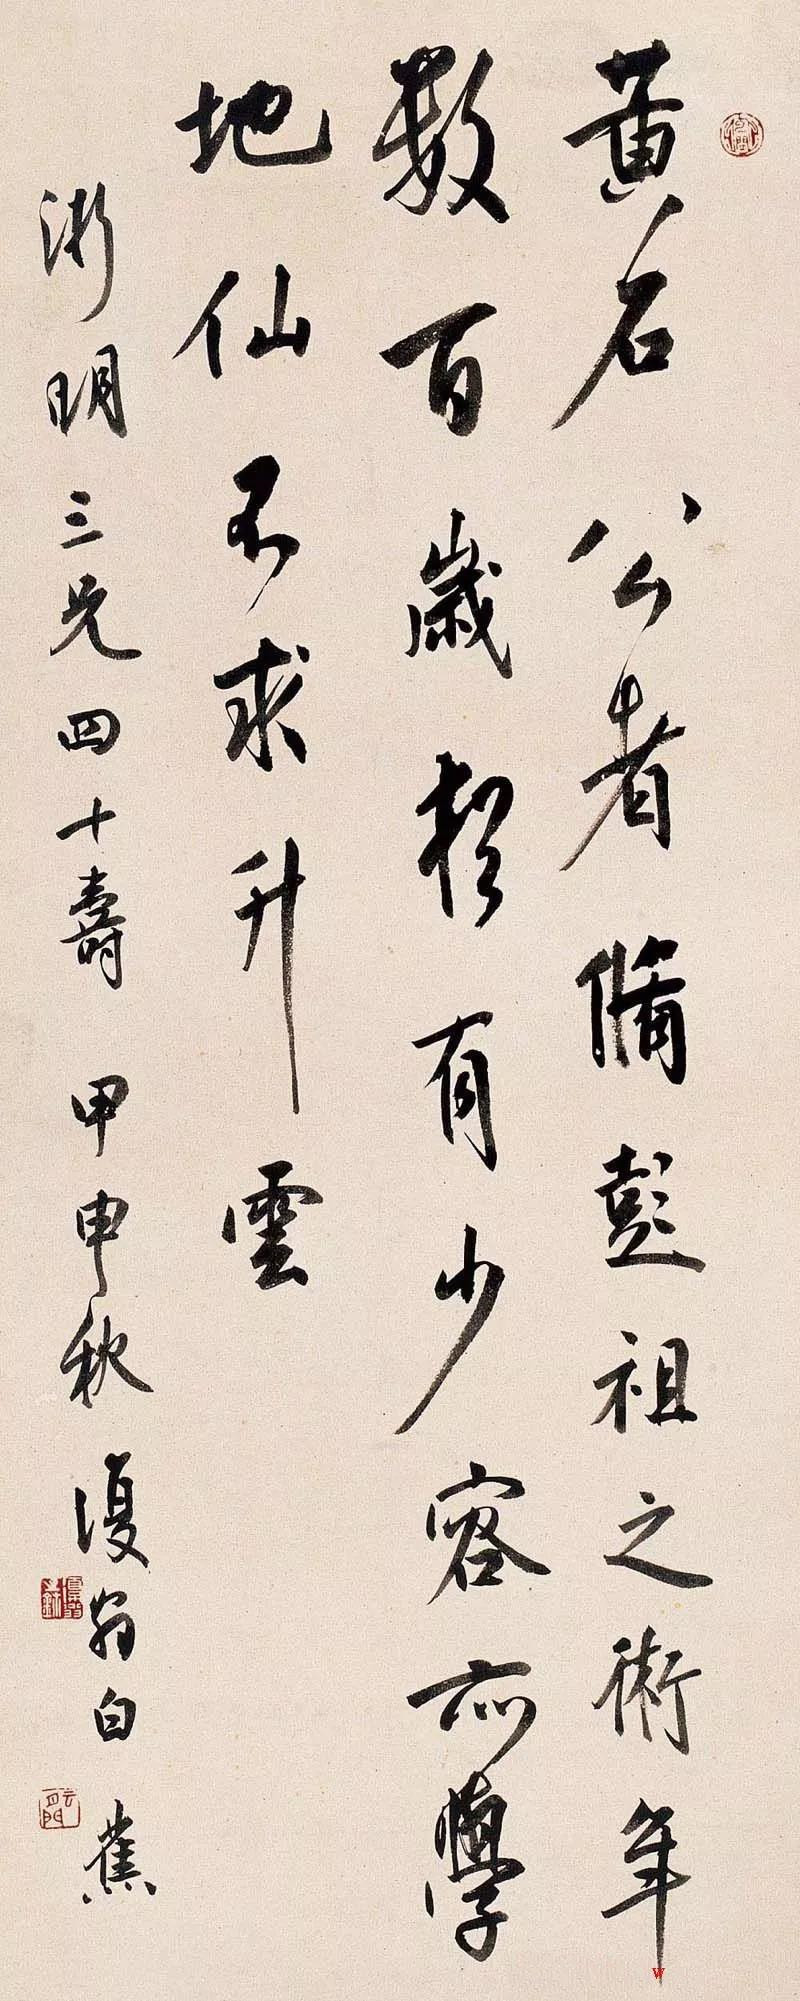 黄石公者脩彭祖之術年
数百歲有少容亦學
地仙不求升雲
明三兄四十壽 甲申秋 復翁白蕉
云間
W